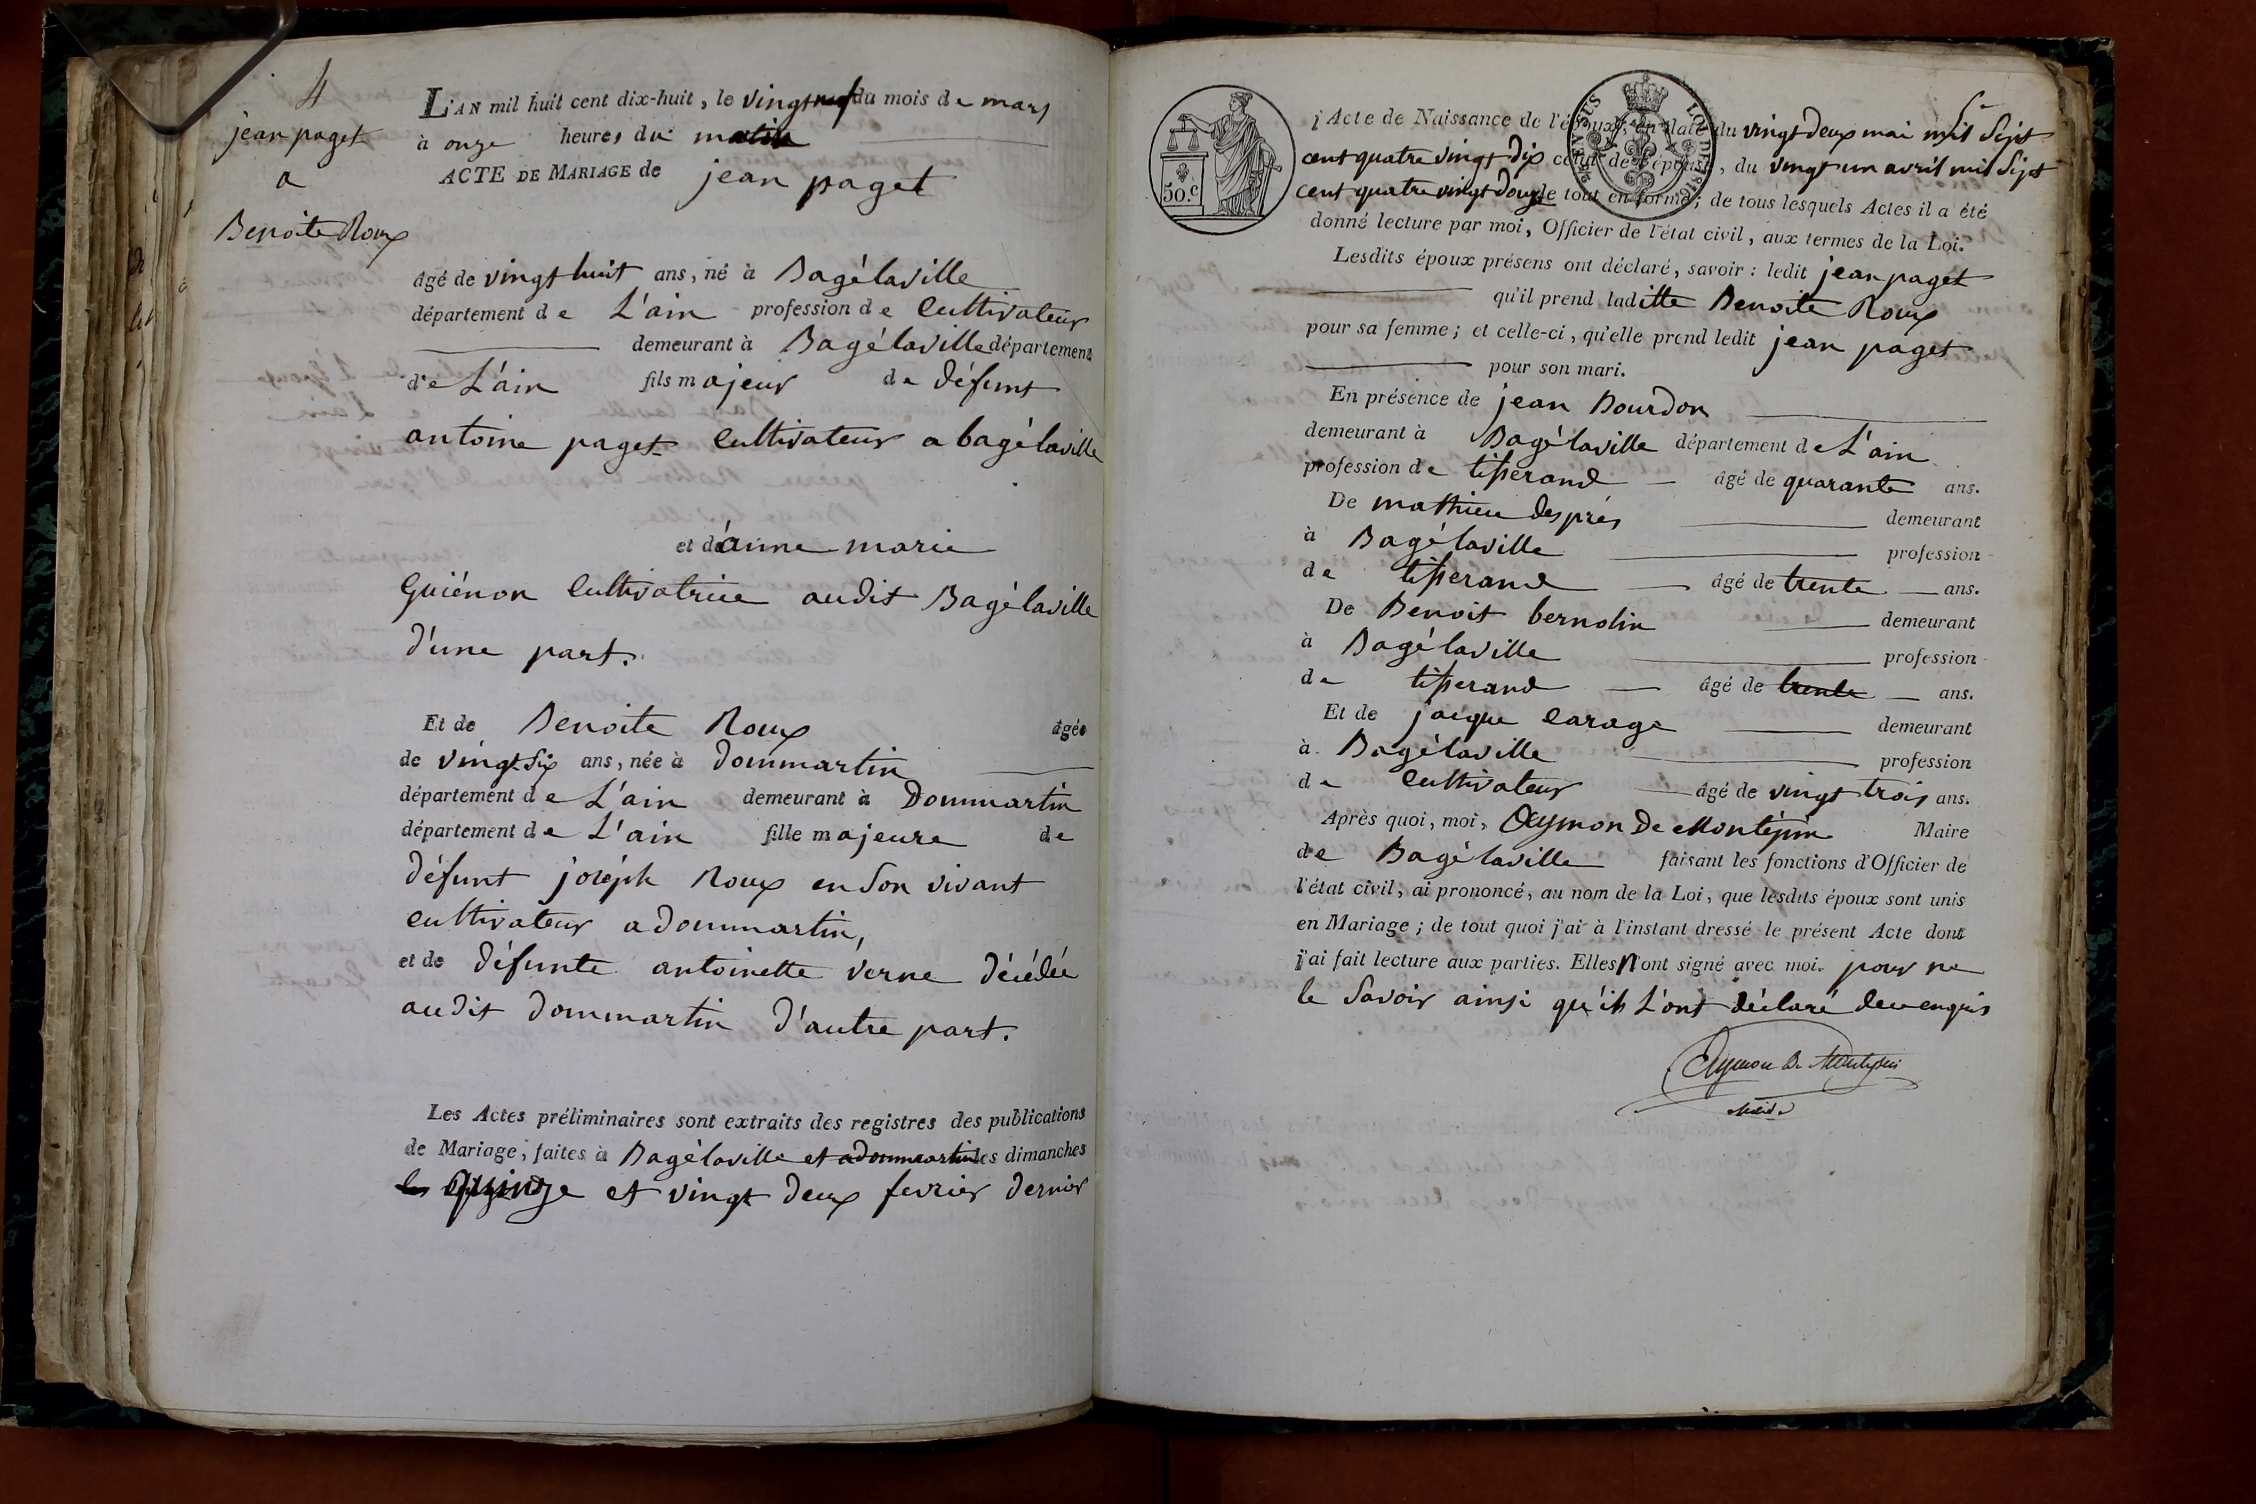 4
jean paget
a
Benoite Roux
L'AN mil huit cent dix-huit, le vingt neuf du mois de mars
à onze heures du matin
ACTE DE MARIAGE de jean paget
âgé de vingt huit ans, né à Bagélaville
département de L'ain profession de Cultivateur
demeurant à Bagélaville département
de L'ain fils majeur de défunt
antoine paget Cultivateur a bagélaville
et de anne marie
Guiénon Cultivatrice audit Bagélaville
d'une part.
Et de Benoite Roux âgée
de vingt Six ans, née à dommartin
département de L'ain demeurant à Dommartin
département de L'ain fille majeure de
défunt joséph Roux en Son vivant
cultivateur a dommartin,
et de défunte antoinette verne décédée
audit dommartin d'autre part.
Les Actes préliminaires sont extraits des registres des publications
de Mariage, faites à Bagélaville et a dommartin les dimanches
les quinze et vingt deux fevrier dernier
50.c
EN SUS LOI DE 1816
l'Acte de Naissance de l'époux, en date du vingt deux mai mil Sept
cent quatre vingt dix celui de l'épouse, du vingt un avril mil Sept
cent quatre vingt douze le tout en forme; de tous lesquels Actes il a été
donné lecture par moi, Officier de l'état civil, aux termes de la Loi.
Lesdits époux présens ont déclaré, savoir: ledit jean paget
qu'il prend laditte Benoite Roux
pour sa femme; et celle-ci, qu'elle prend ledit jean paget
pour son mari.
En présence de jean Bourdon
demeurant à Bagélaville département de L'ain
profession de tisserand âgé de quarante ans.
De mathieu després demeurant
à Bagélaville profession
de tisserand âgé de trente ans.
De Benoit bernolin demeurant
à Bagélaville profession
de tisserand âgé de trente ans.
Et de jacque Carage demeurant
à Bagélaville profession
de Cultivateur âgé de vingt trois ans.
Après quoi, moi, Aymon De Montépin Maire
de Bagélaville faisant les fonctions d'Officier de
l'état civil, ai prononcé, au nom de la Loi, que lesdits époux sont unis
en Mariage; de tout quoi j'ai à l'instant dressé le présent Acte dont
j'ai fait lecture aux parties. Elles n'ont signé avec moi. pour ne
le Savoir ainsi qu'ils L'ont déclaré de ce enquis
Aymon De Montepin